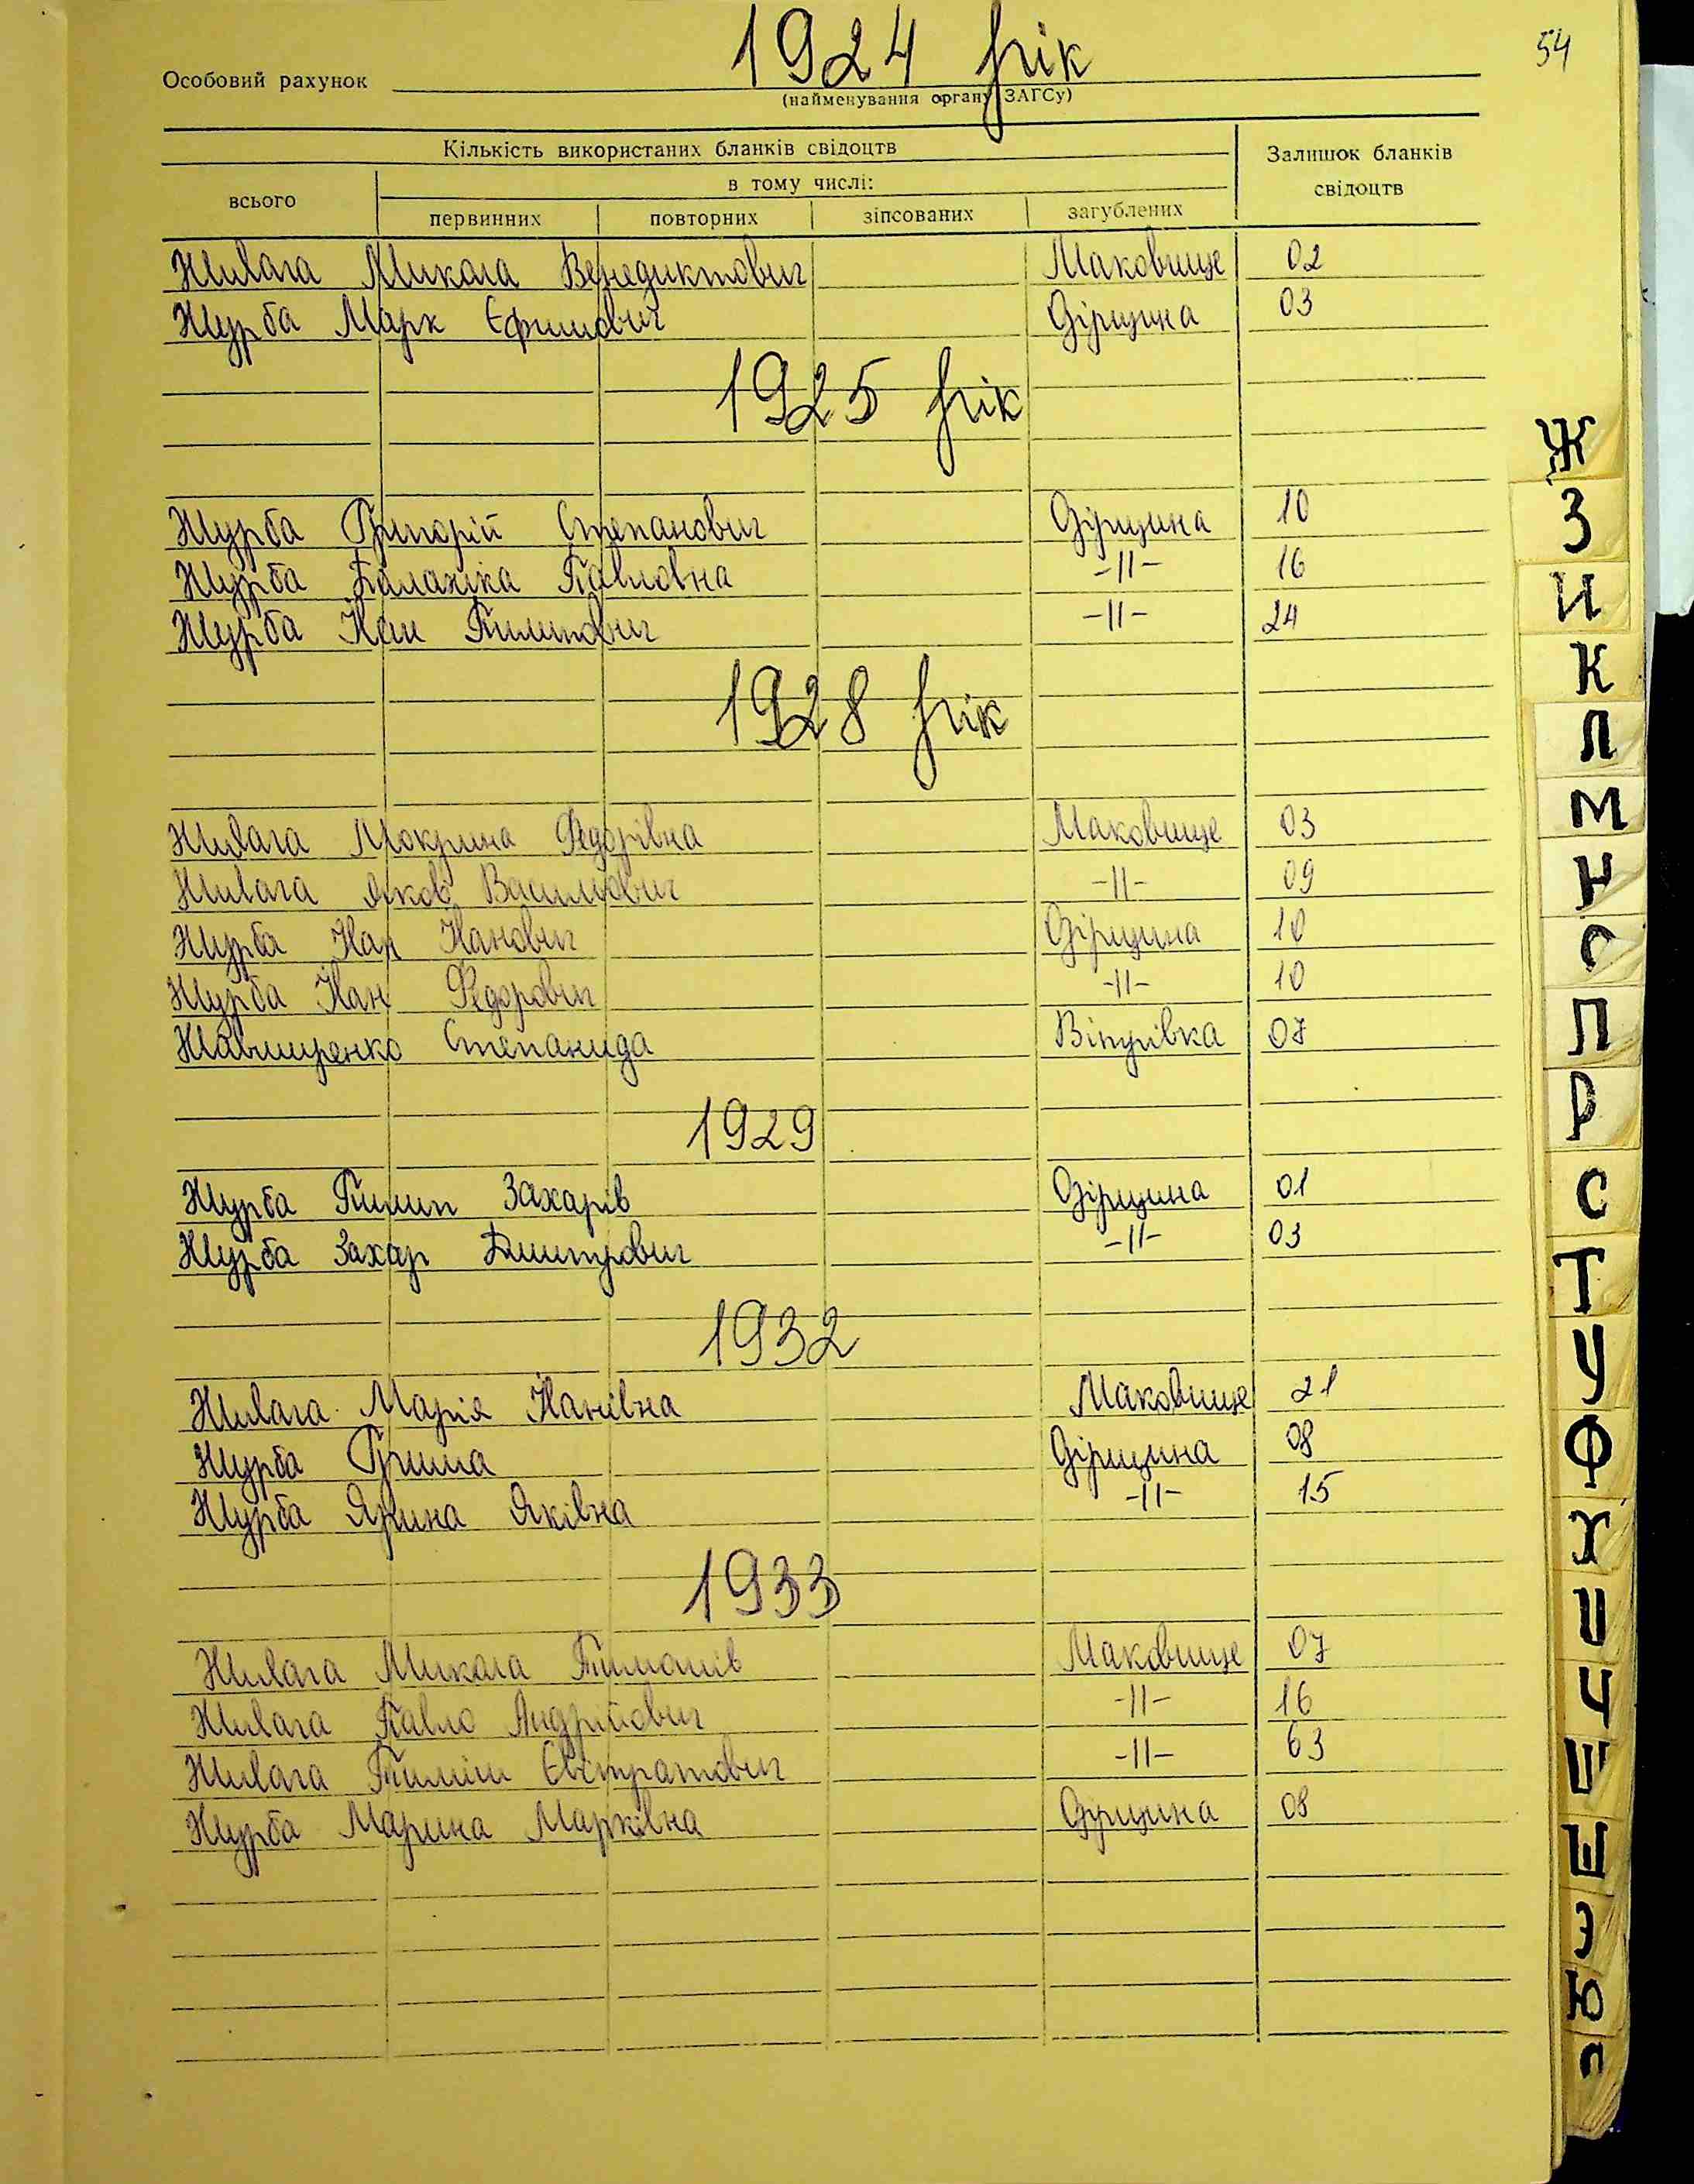 54
1924 рік
Особовий рахунок
(найменування органу ЗАГСу)
Кількість використаних бланків свідоцтв
Залишок бланків свідоцтв
всього
в тому числі:
первинних повторних зіпсованих загублених
Жила Микола Венедиктович Маковище 02
Журба Марк Єфимович Дірщина 03
1925 рік
Журба Григорій Степанович Дірщина 10
Журба Палажка Павловна -||- 16
Журба Іван Пилипович -||- 24
1928 рік
Мокрина Федорівна Маковище 03
Яков Василович -||- 09
Журба Іван Іванович Дірщина 10
Журба Іван Федорович -||- 10
Степанида 07
1929
Журба Пилип Захарів Дірщина 01
Журба Захар Дмитрович -||- 03
1932
Марія Іванівна Маковище 21
Журба Гриша Дірщина 08
Журба Ярина Яківна -||- 15
1933
Микола Маковище 07
Павло Андрійович -||- 16
Євстратович -||- 63
Журба Марина Марківна Дірщина 08
Ж
З
И
К
Л
М
Н
О
П
Р
С
Т
У
Ф
Х
Ц
Ч
Ш
Щ
Э
Ю